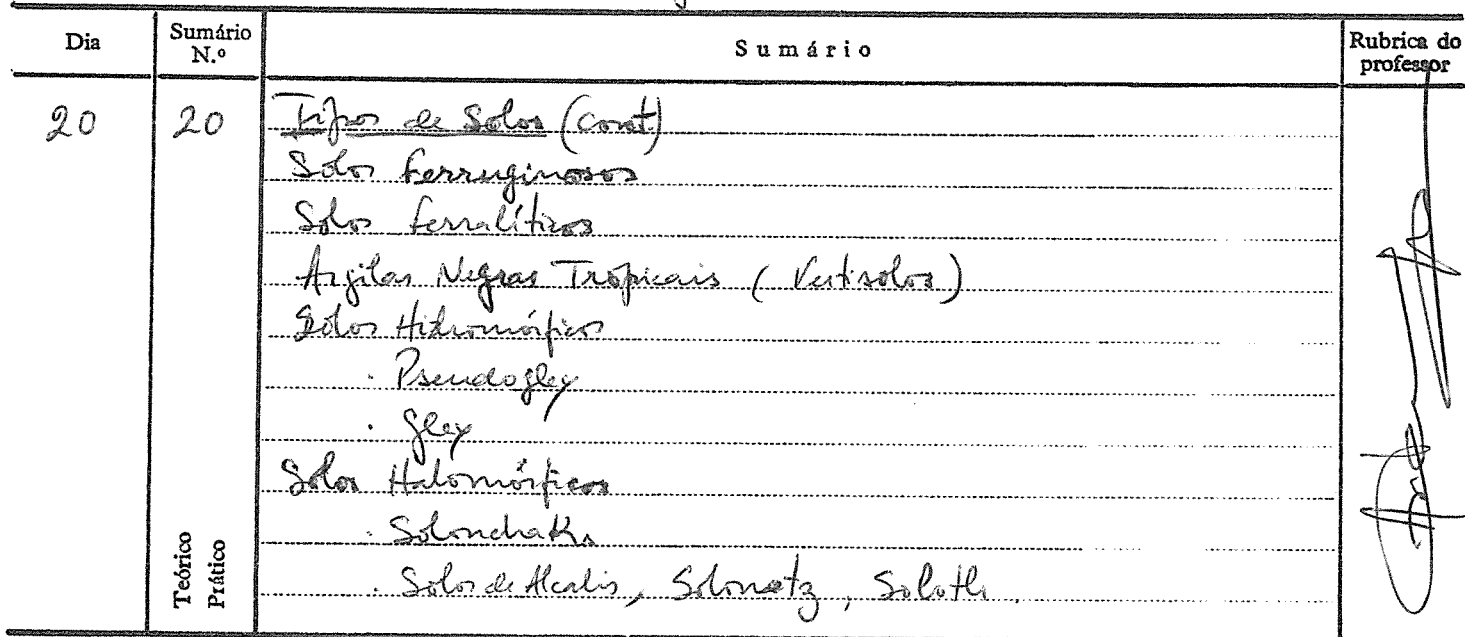 Dia
Sumário N.º
Sumário
Rubrica do professor
20
20
Tipos de Solos (cont.)
Solos Ferruginosos
Solos Ferralíticos
Argilas Negras Tropicais (Vertisolos)
Solos Hidromórficos
. Pseudogley
. Gley
Solos Halomórficos
. Solonchaks
. Solos de Alcalis, Solonetz, Soloth.
Teórico
Prático